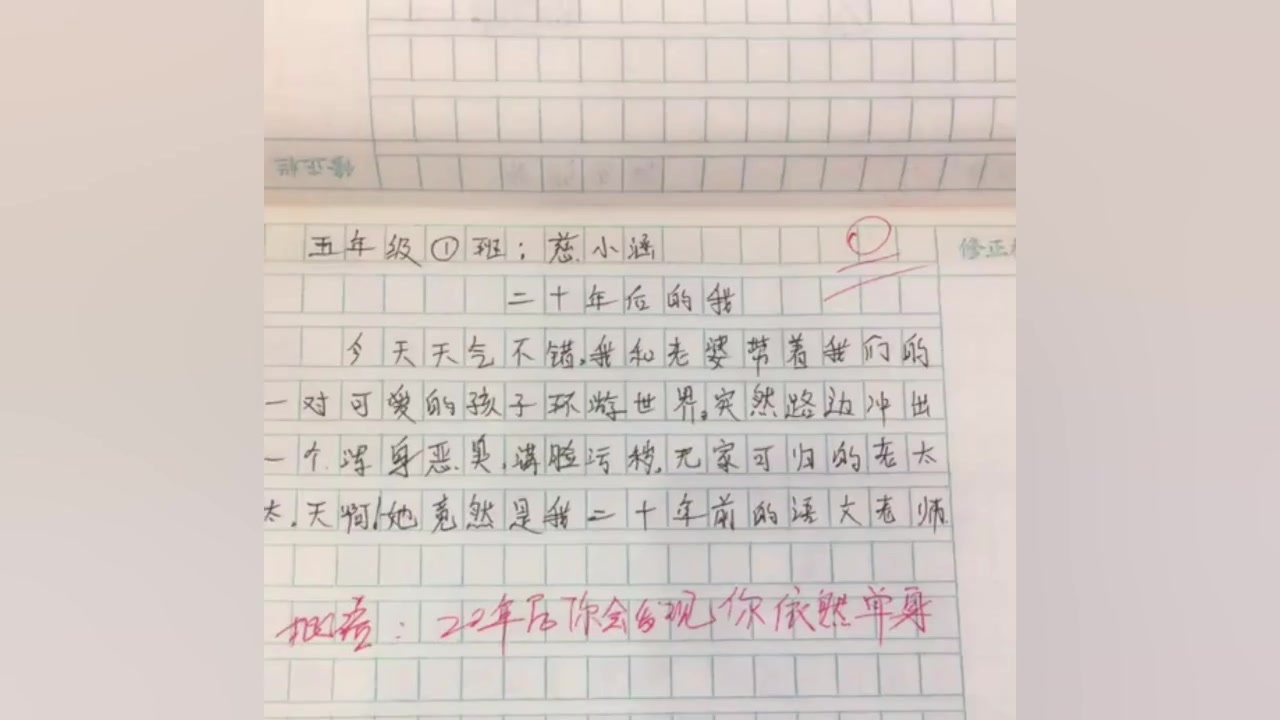 修正栏
五年级①班：慈小涵
修正
二十年后的我
今天天气不错,我和老婆带着我们的
一对可爱的孩子环游世界。突然路边冲出
一个浑身恶臭,满脸污秽,无家可归的老太
太.天啊!她竟然是我二十年前的语文老师
：22年后你会发现,你依然单身